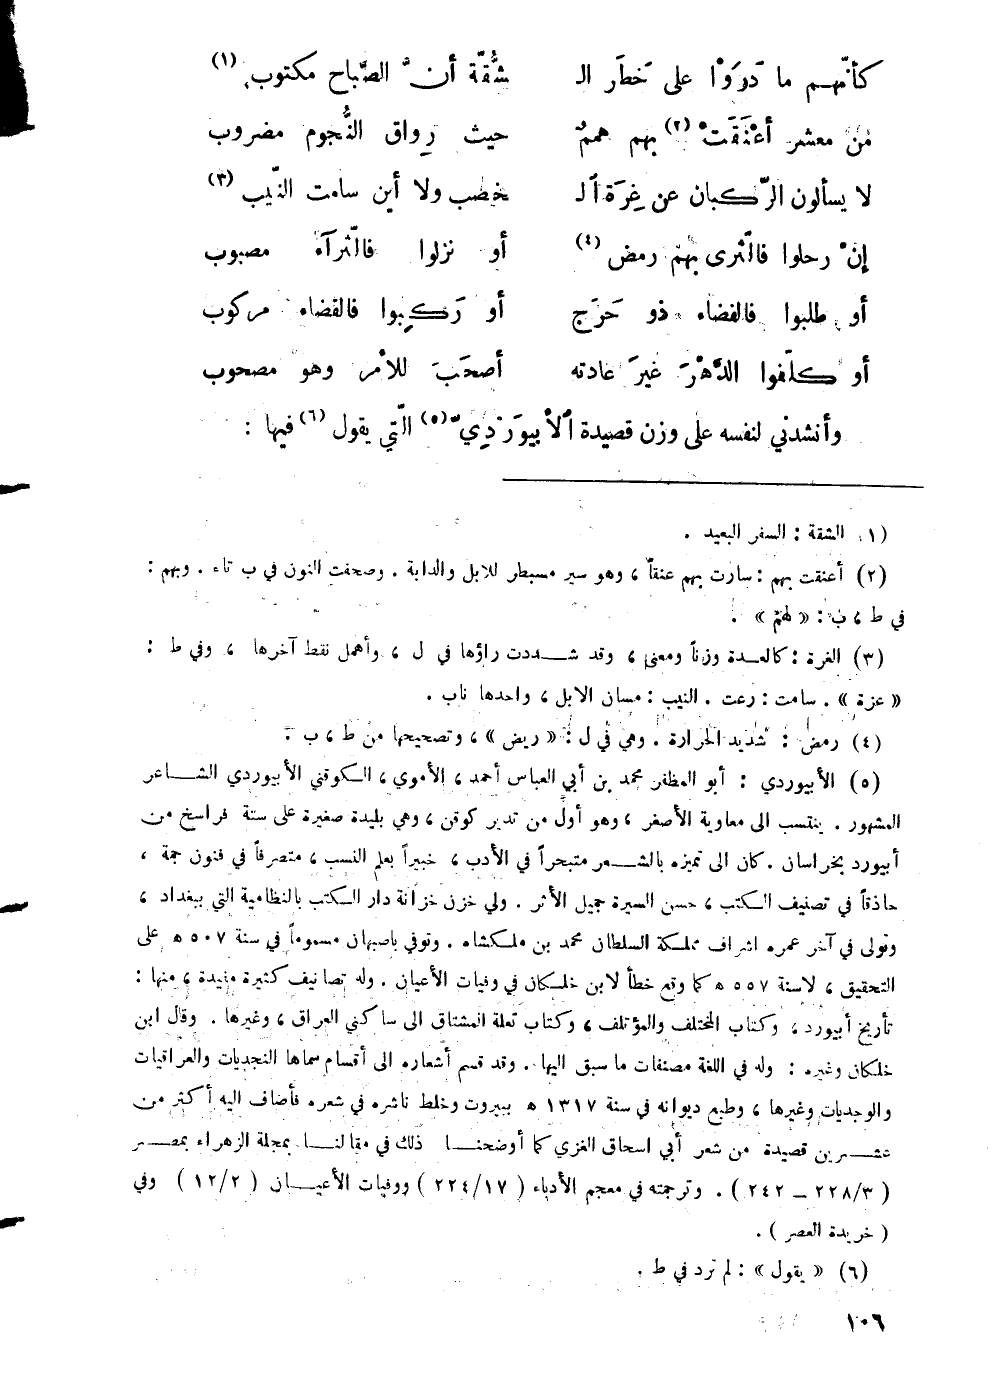 كأنّهم ما دَرَوْا على خطَر الـ شُقّة أنّ الصَّباح مكتوب (١)
من معشر أعْنَقَتْ (٢) بهم هممٌ حيث رِواق النُّجوم مضروب
لا يسألون الرّكبان عن غِرَة الـ خصب ولا أين سامت النّيب (٣)
إنْ رحلوا فالثّرى بهم رمض (٤) أو نزلوا فالثّرآء مصبوب
أو طلبوا فالفضاء ذو حَرَج أو رَكِبوا فالقضاء مركوب
أو كلّفوا الدّهْرَ غيرَ عادته أصحَبَ للأمر وهو مصحوب
وأنشدني لنفسه على وزن قصيدة الأبيوَرْدِيّ (٥) الّتي يقول (٦) فيها :
(١) الشقة : السفر البعيد .
(٢) أعنقت بهم : سارت بهم عنقاً ، وهو سير مسبطر للابل والدابة . وصحفت النون في ب تاء . وبهم :
في ط ، ب : « لهم » .
(٣) الغرة : كالعدة وزناً ومعنى ، وقد شددت راؤها في ل ، وأهمل نقط آخرها ، وفي ط :
« عزة » . سامت : رعت . النيب : مسان الابل ، واحدها ناب .
(٤) رمض : شديد الحرارة . وهي في ل : « ربض » ، وتصحيحها من ط ، ب .
(٥) الأبيوردي : أبو المظفر محمد بن أبي العباس أحمد ، الأموي ، الكوقني الأبيوردي الشاعر
المشهور . ينتسب الى معاوية الأصغر ، وهو أول من تدير كوقن ، وهي بليدة صغيرة على ستة فراسخ من
أبيورد بخراسان . كان الى تميزه بالشعر متبحراً في الأدب ، خبيراً بعلم النسب ، متصرفاً في فنون جمة ،
حاذقاً في تصنيف الكتب ، حسن السيرة جميل الأثر . ولي خزن خزانة دار الكتب بالنظامية التي ببغداد ،
وتولى في آخر عمره اشراف مملكة السلطان محمد بن ملكشاه . وتوفي باصبهان مسموماً في سنة ٥٠٧ ه على
التحقيق ، لاسنة ٥٥٧ ه كما وقع خطأ لابن خلكان في وفيات الأعيان . وله تصانيف كثيرة مفيدة ، منها :
تأريخ أبيورد ، وكتاب المختلف والمؤتلف ، وكتاب تعلة المشتاق الى ساكني العراق ، وغيرها . وقال ابن
خلكان وغيره : وله في اللغة مصنفات ما سبق اليها . وقد قسم أشعاره الى أقسام سماها النجديات والعراقيات
والوجديات وغيرها ، وطبع ديوانه في سنة ١٣١٧ ه ببيروت وخلط ناشره في شعره فأضاف اليه أكثر من
عشرين قصيدة من شعر أبي اسحاق الغزي كما أوضحنا ذلك في مقالنا بمجلة الزهراء بمصر
( ٣/ ٢٢٨ – ٢٤٢ ) . وترجمته في معجم الأدباء ( ١٧/ ٢٢٤ ) ووفيات الأعيان ( ٢/ ١٢ ) وفي
( خريدة العصر ) .
(٦) « يقول » : لم ترد في ط .
١٠٦